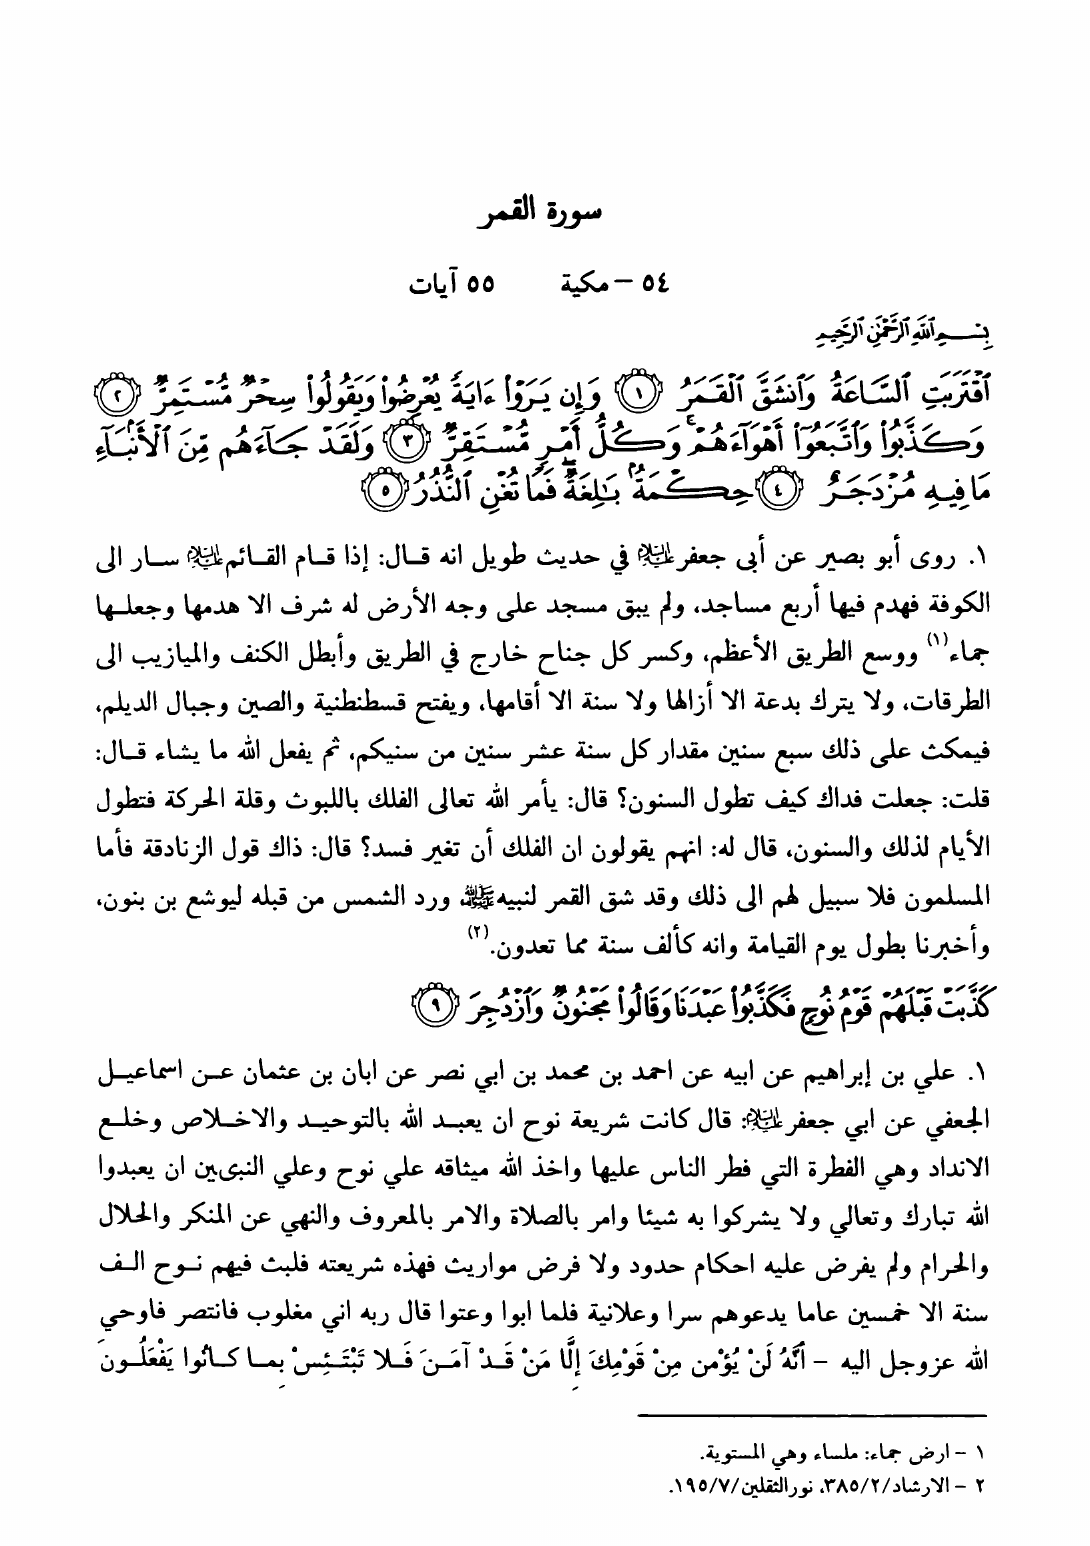 سورة القمر
٥٤ – مكية ٥٥ آيات
بِسْمِ اللَّهِ الرَّحْمَٰنِ الرَّحِيمِ
ٱقْتَرَبَتِ ٱلسَّاعَةُ وَٱنشَقَّ ٱلْقَمَرُ ۝١ وَإِن يَرَوْا۟ ءَايَةً يُعْرِضُوا۟ وَيَقُولُوا۟ سِحْرٌ مُّسْتَمِرٌّ ۝٢
وَكَذَّبُوا۟ وَٱتَّبَعُوٓا۟ أَهْوَآءَهُمْ ۚ وَكُلُّ أَمْرٍ مُّسْتَقِرٌّ ۝٣ وَلَقَدْ جَآءَهُم مِّنَ ٱلْأَنۢبَآءِ
مَا فِيهِ مُزْدَجَرٌ ۝٤ حِكْمَةٌۢ بَٰلِغَةٌ ۖ فَمَا تُغْنِ ٱلنُّذُرُ ۝٥
١. روى أبو بصير عن أبى جعفر عليه السلام في حديث طويل انه قـال: إذا قـام القـائم عليه السلام سـار الى
الكوفة فهدم فيها أربع مساجد، ولم يبق مسجد على وجه الأرض له شرف الا هدمها وجعلـها
جماء(١) ووسع الطريق الأعظم، وكسر كل جناح خارج في الطريق وأبطل الكنف والميازيب الى
الطرقات، ولا يترك بدعة الا أزالها ولا سنة الا أقامها، ويفتح قسطنطنية والصين وجبال الديلم،
فيمكث على ذلك سبع سنين مقدار كل سنة عشر سنين من سنيكم، ثم يفعل الله ما يشاء قـال:
قلت: جعلت فداك كيف تطول السنون؟ قال: يأمر الله تعالى الفلك باللبوث وقلة الحركة فتطول
الأيام لذلك والسنون، قال له: انهم يقولون ان الفلك أن تغير فسد؟ قال: ذاك قول الزنادقة فأما
المسلمون فلا سبيل لهم الى ذلك وقد شق القمر لنبيه ﷺ، ورد الشمس من قبله ليوشع بن بنون،
وأخبرنا بطول يوم القيامة وانه كألف سنة مما تعدون.(٢)
كَذَّبَتْ قَبْلَهُمْ قَوْمُ نُوحٍ فَكَذَّبُوا۟ عَبْدَنَا وَقَالُوا۟ مَجْنُونٌ وَٱزْدُجِرَ ۝٩
١. علي بن إبراهيم عن ابيه عن احمد بن محمد بن ابي نصر عن ابان بن عثمان عـن اسماعيـل
الجعفي عن ابي جعفر عليه السلام: قال كانت شريعة نوح ان يعبـد الله بالتوحيـد والاخـلاص وخلـع
الانداد وهي الفطرة التي فطر الناس عليها واخذ الله ميثاقه علي نوح وعلي النبيين ان يعبدوا
الله تبارك وتعالي ولا يشركوا به شيئا وامر بالصلاة والامر بالمعروف والنهي عن المنكر والحلال
والحرام ولم يفرض عليه احكام حدود ولا فرض مواريث فهذه شريعته فلبث فيهم نـوح الـف
سنة الا خمسين عاما يدعوهم سرا وعلانية فلما ابوا وعتوا قال ربه اني مغلوب فانتصر فاوحي
الله عزوجل اليه – أَنَّهُ لَنْ يُؤْمن مِنْ قَوْمِكَ إِلَّا مَنْ قَـدْ آمَـنَ فَـلا تَبْتَـئِسْ بِمـا كـانُوا يَفْعَلُـونَ
١ – ارض جماء: ملساء وهي المستوية.
٢ – الارشاد/٣٨٥/٢، نورالثقلين/١٩٥/٧.